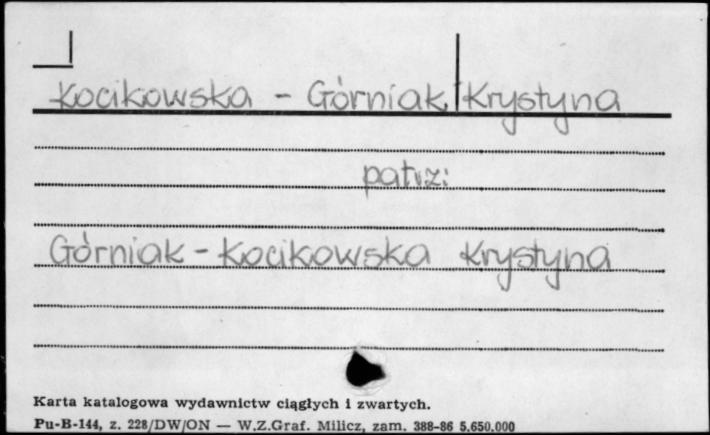 Kocikowska - Górniak Krystyna
patrz:
Górniak - Kocikowska Krystyna
Karta katalogowa wydawnictw ciągłych i zwartych.
Pu-B-144, z. 228/DW/ON — W.Z.Graf. Milicz, zam. 388-86 5.650.000